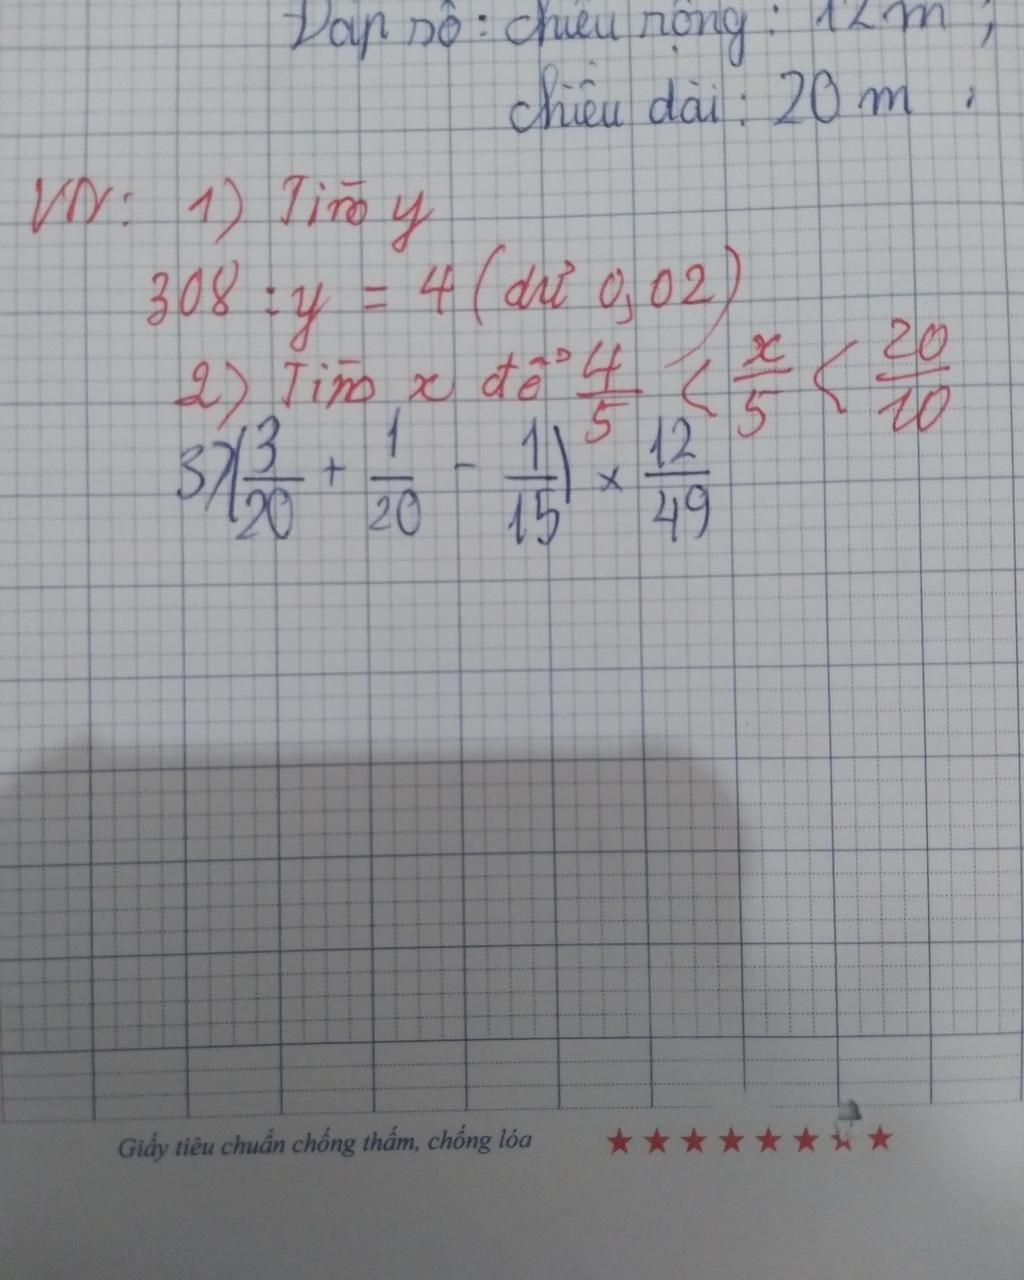 Đáp số: chiều rộng: 12 m;
chiều dài: 20 m.
VN: 1) Tìm y
308 : y = 4 (dư 0,02)
2) Tìm x để 4/5 < x/5 < 20/10
3) (3/20 + 1/20 - 1/15) × 12/49
Giấy tiêu chuẩn chống thấm, chống lóa